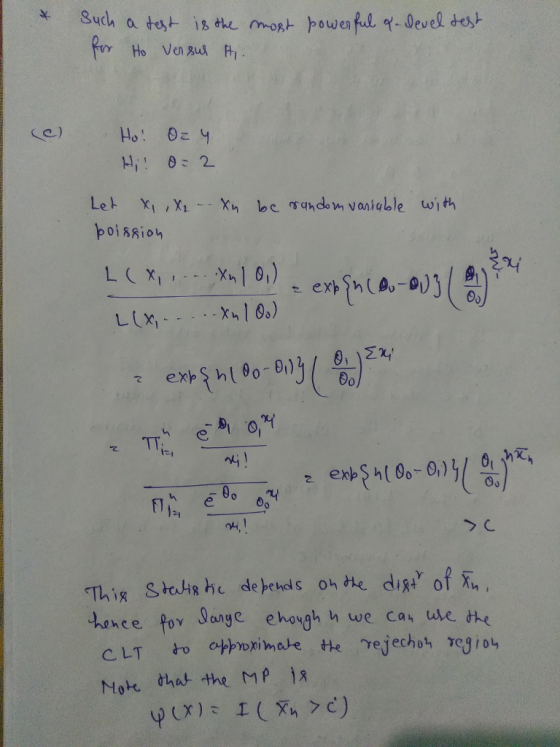 * Such a test is the most powerful α-level test
for H₀ versus H₁.
(c) H₀: θ = 4
H₁: θ = 2
Let x₁, x₂ -- xₙ be random variable with
poission
L(x₁, ..... xₙ | θ₁) / L(x₁, ..... xₙ | θ₀) = exp{n(θ₀-θ₁)} (θ₁/θ₀)^{Σ₁ⁿ xᵢ}
= exp{n(θ₀-θ₁)} (θ₁/θ₀)^{Σxᵢ}
= π_{i=1}^{n} (e^{-θ₁} θ₁^{xᵢ} / xᵢ!) / π_{i=1}^{n} (e^{-θ₀} θ₀^{xᵢ} / xᵢ!) = exp{n(θ₀-θ₁)} (θ₁/θ₀)^{n x̄ₙ}
> c
This Statistic depends on the distʳ of x̄ₙ,
hence for large enough n we can use the
CLT to approximate the rejection region
Note that the MP is
φ(x) = I(x̄ₙ > c')